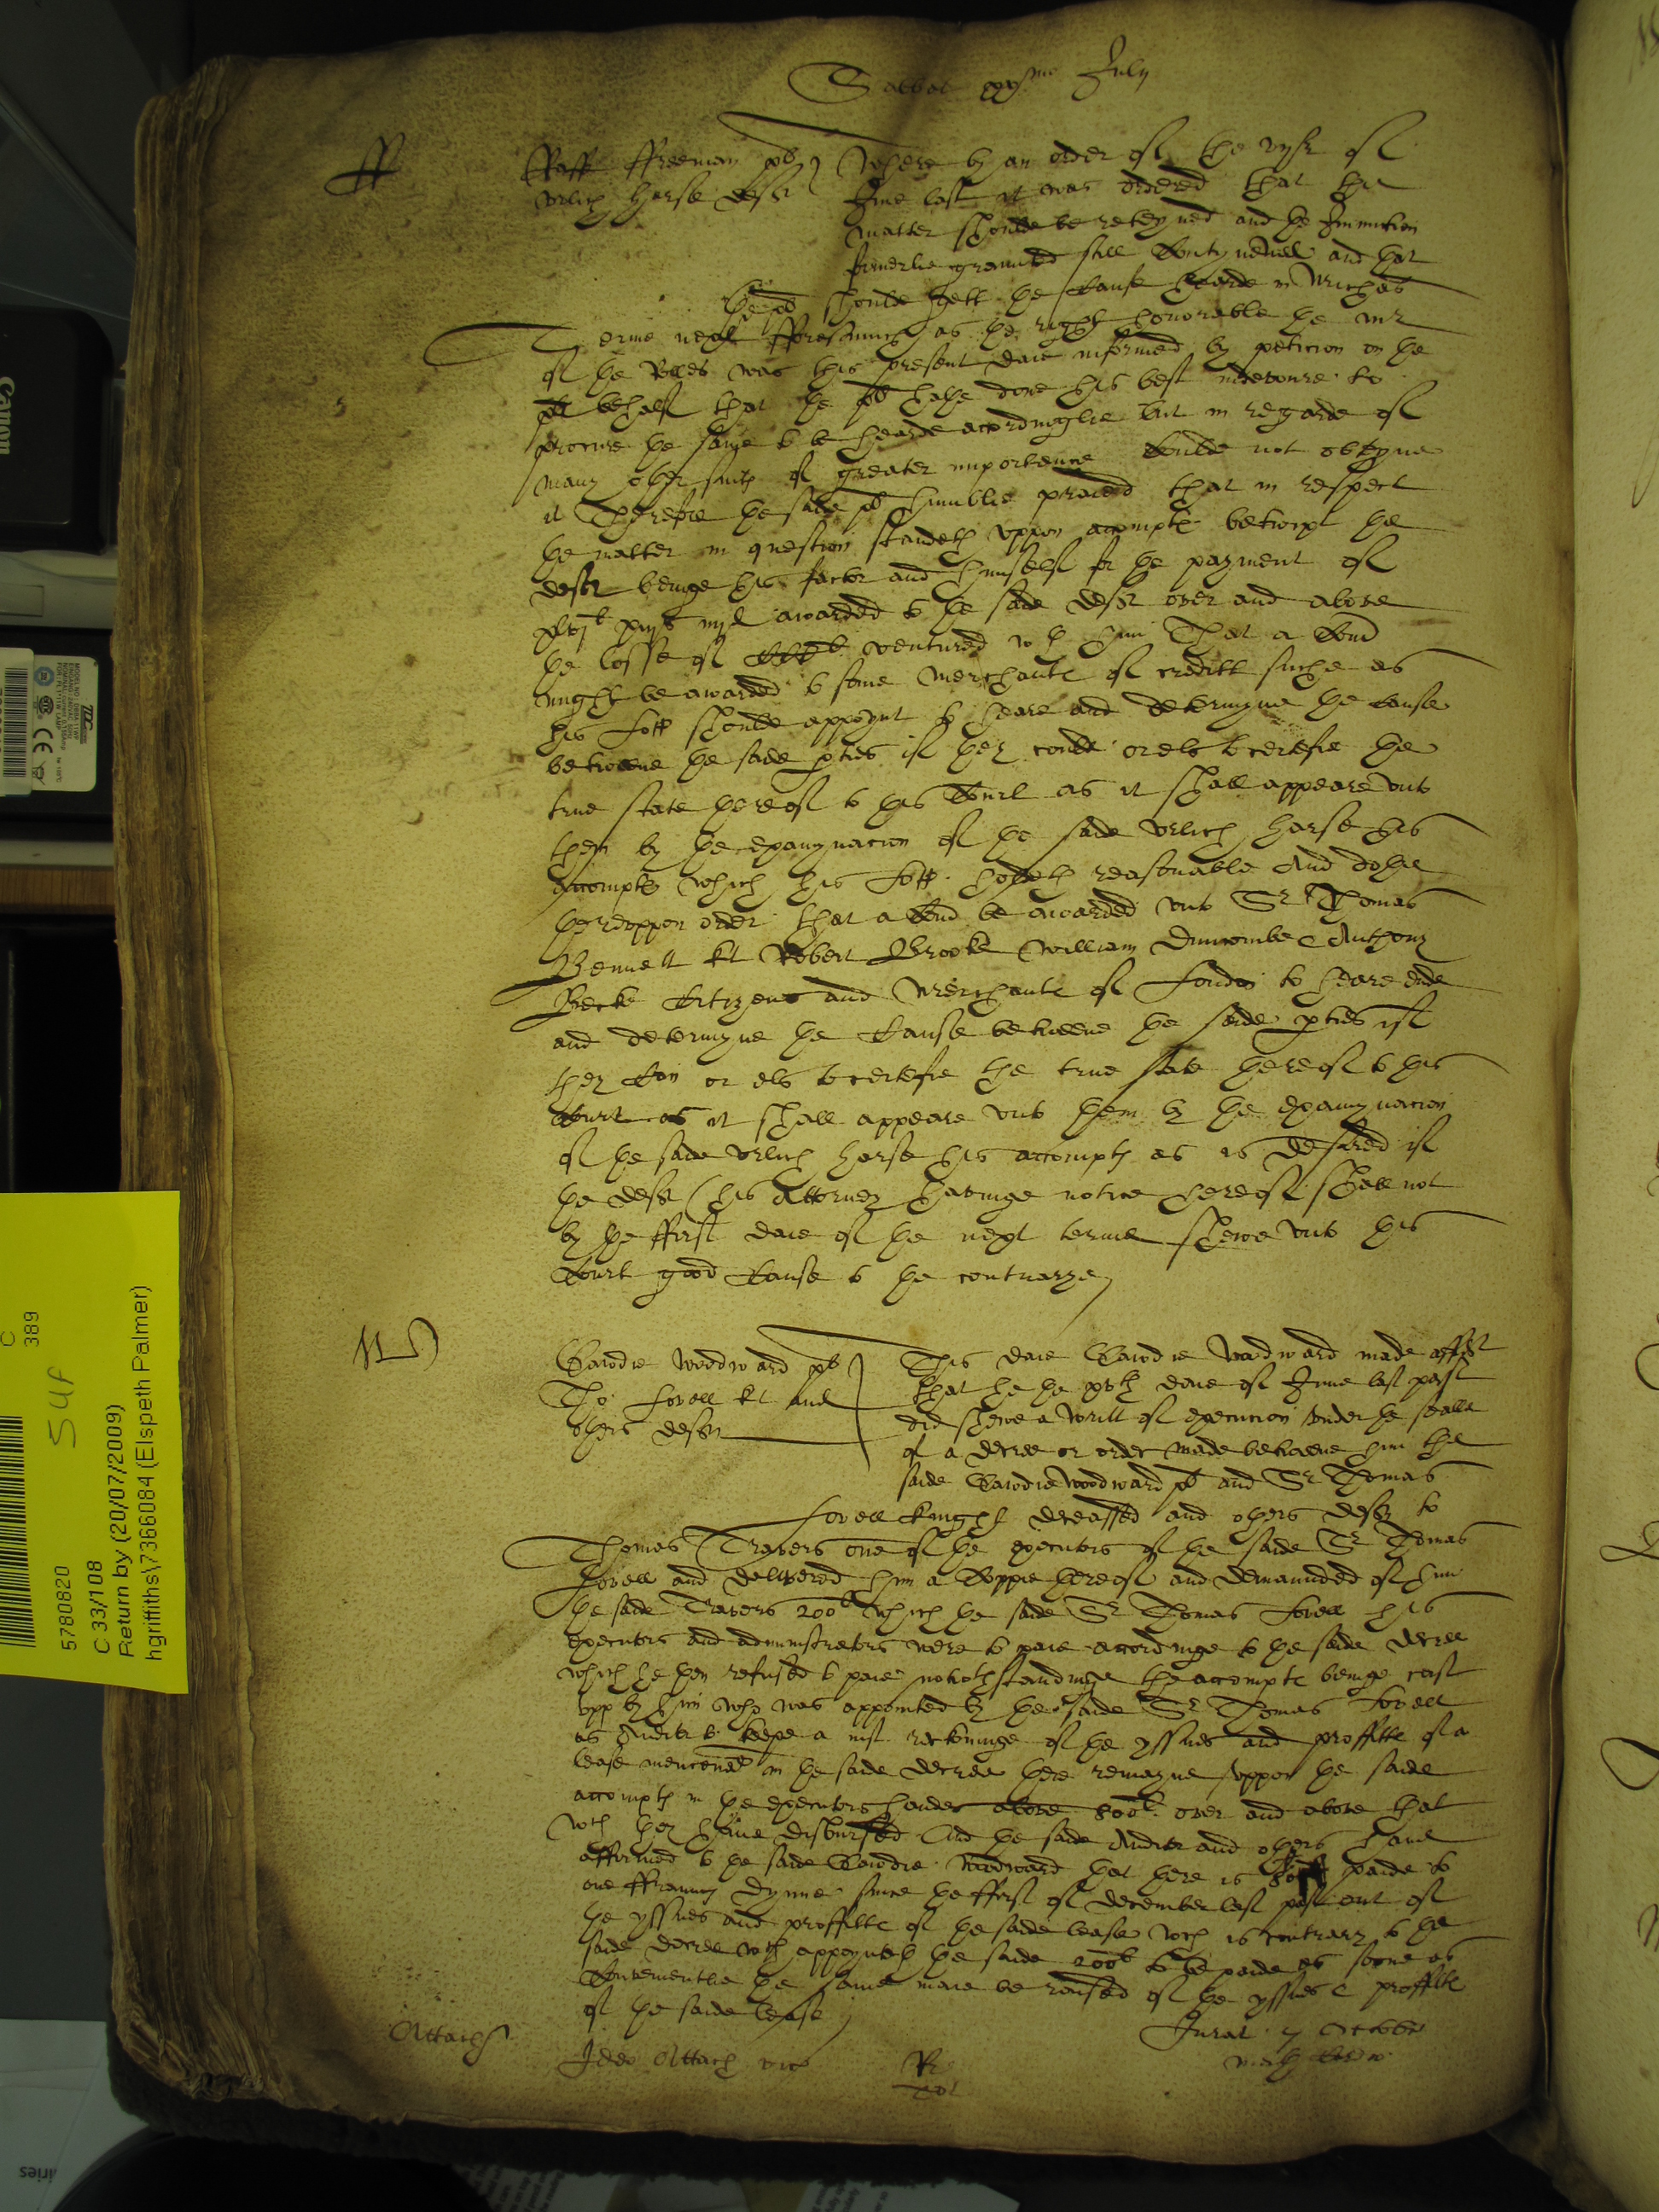 Sabbat xxjmo July
ff
Raff Freeman pl
Ulrich Herse deft
Where by an order of the vjth of
June last it was ordered that the
matter shoulde be reteyned and the Iniunction
formerlie graunted still Contynewed and that
the pl should gett the Cause hearde in Michas
Terme next fforasmuch as the right honorable the mr
of the Rolles was this present daie informed by peticion on the
pl behalf that the pl hathe done his best indevoure to
procure the same to be hearde accordinglie but in regarde of
many other suits of greater importance Coulde not obteyne
it Therefore the saide pl humblie praied that in respect
the matter in question standeth uppon accompte betwixt the
deft beinge his factor and himself for the payment of
awarded to the saide deft over and above
the losse of ventured wth him That a Comd
might be awarded to some Merchante of creditt suche as
his Lopp shoulde appoynt to heare and determyne the Cause
betweene the saide pties if they could or els to certefie the
true state thereof to this Court as it shall appeare unto
them by the examynacion of the saide Ulrich Herse his
accompts which his Lopp holdeth reasonable And dothe
thereuppon order that a Comd be awarded unto Sr Thomas
Bennett kt Robert Brooke William Duncombe & Anthony
Becke Citizens and Merchante of London to heare ende
and determyne the Cause betweene the saide pties if
they Can or els to certefie the true state thereof to this
Court as it shall appeare unto them by the examynacion
of the saide Ulrich Herse his accompts as is desired if
the deft (his Attorney havinge notice hereof) shall not
by the ffirst daie of the next terme shewe unto this
Court good Cause to the contrarye
Gawdie Woodward pl
Tho: Lovell kt and
others defts
This daie Gawdie Woodward made affidt
that he the xvth daie of June last past
did shewe a Writt of execucion under the seale
of a decree or order made betweene him the
saide Gawdie Woodward pl and Sr Thomas
Lovell knight deceassed and others defts to
Thomas Travers one of the executors of the saide Sr Thomas
Lovell and delivered him a Coppie thereof and demaunded of him
the saide Travers 200l which the saide Sr Thomas Lovell his
executors and administrators were to paie accordinge to the saide decree
which he then refused to paie notwthstandinge the accompte beinge cast
upp by him who was appointed by the saide Sr Thomas Lovell
as Auditor to keepe a iust reckoninge of the yssues and proffitte of a
lease mencioned in the saide decree there remayne uppon the saide
accompts in the executors handes above 800l over and above that
wch they have disbursed And the saide Auditor and others have
affirmed to the saide Gawdie Woodward that there is paide to
one ffrauncs Dynne since the ffirst of December last past out of
the yssues and proffitte of the saide lease wch is contrary to the
saide decree wch appoynteth the saide 200l to be paide as soone as
Convenientlie the same maie be raised of the yssues & proffitte
of the saide lease
Jurat 7 Octobr
Attach
Ideo Attach vic
5780820
Suf
C 33/108
Return by (20/07/2009)
hgriffiths\7366084 (Elspeth Palmer)
C
389
Canon